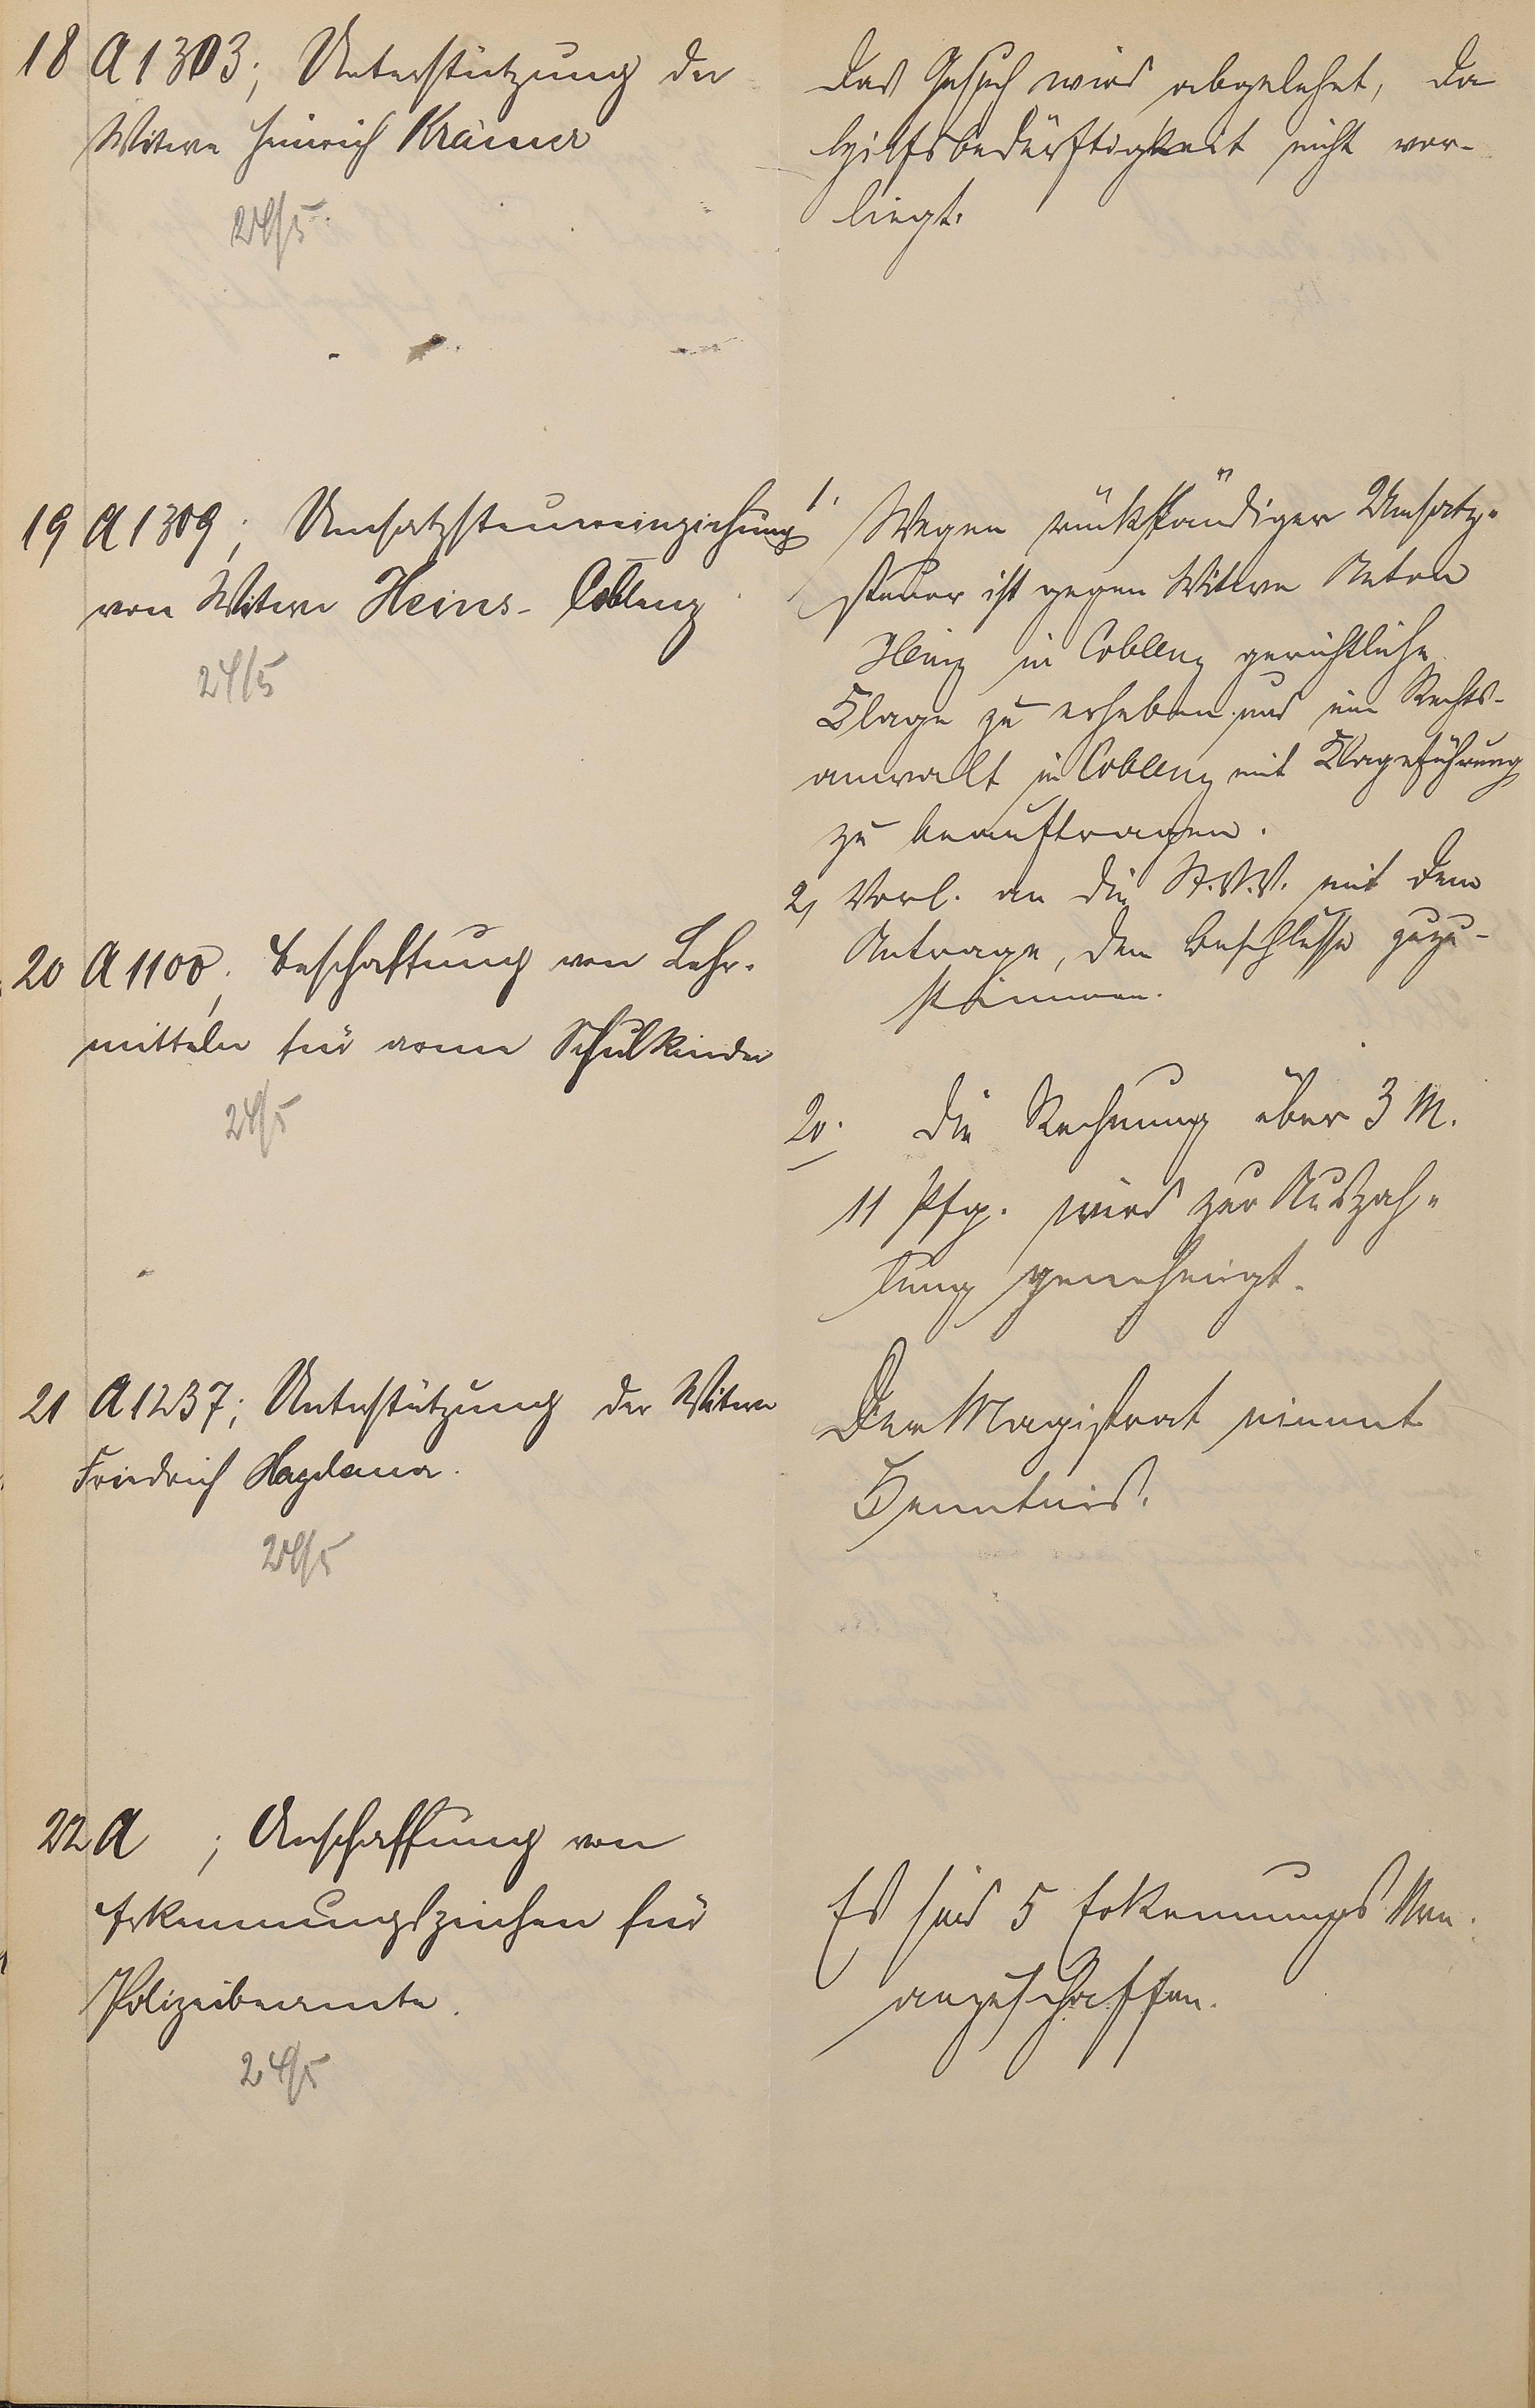 18 A 1303; Unterstützung der
Witwe Heinrich Krämer
24/5.
Das Gesuch wird abgelehnt, da
Hilfsbedürftigkeit nicht vor-
liegt.
19 A 1309; Umsatzsteuereinziehung
von Witwe Heins - Coblenz
24/5
1. Wegen rückständiger Umsatz-
steuer ist gegen Witwe Anton
Heinz in Coblenz gerichtliche
Klage zu erheben und ein Rechts-
anwalt in Coblenz mit Klageführung
zu beauftragen.
2, Vorl. an die St.V.V. mit dem
Antrage, dem Beschlusse zuzu-
stimmen.
20 A 1100; Beschaffung von Lehr-
mitteln für arme Schulkinder
24/5
20. Die Rechnung über 3 M.
11 Pfg. wird zur Auszah-
lung genehmigt.
21 A 1237; Unterstützung der Witwe
Friedrich
24/5
Der Magistrat nimmt
Kenntnis.
22 A ; Anschaffung von
Erkennungszeichen für
Polizeibeamte.
24/5
Es sind 5 Erkennungs
anzuschaffen.